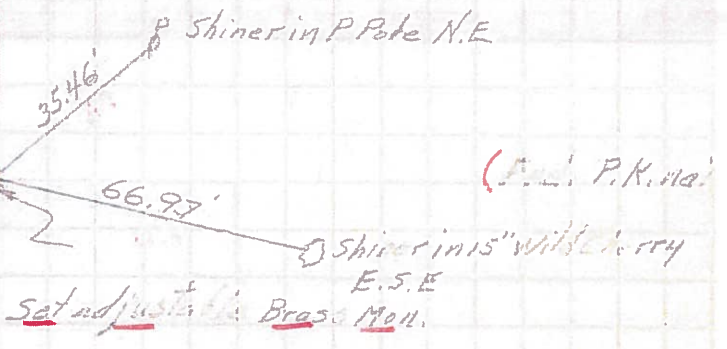 Shiner in P Pole N.E
35.46'
P.K. na
66.97'
Shiner in 15" Wild Cherry
E.S.E
Set adjustable Brass Mon.